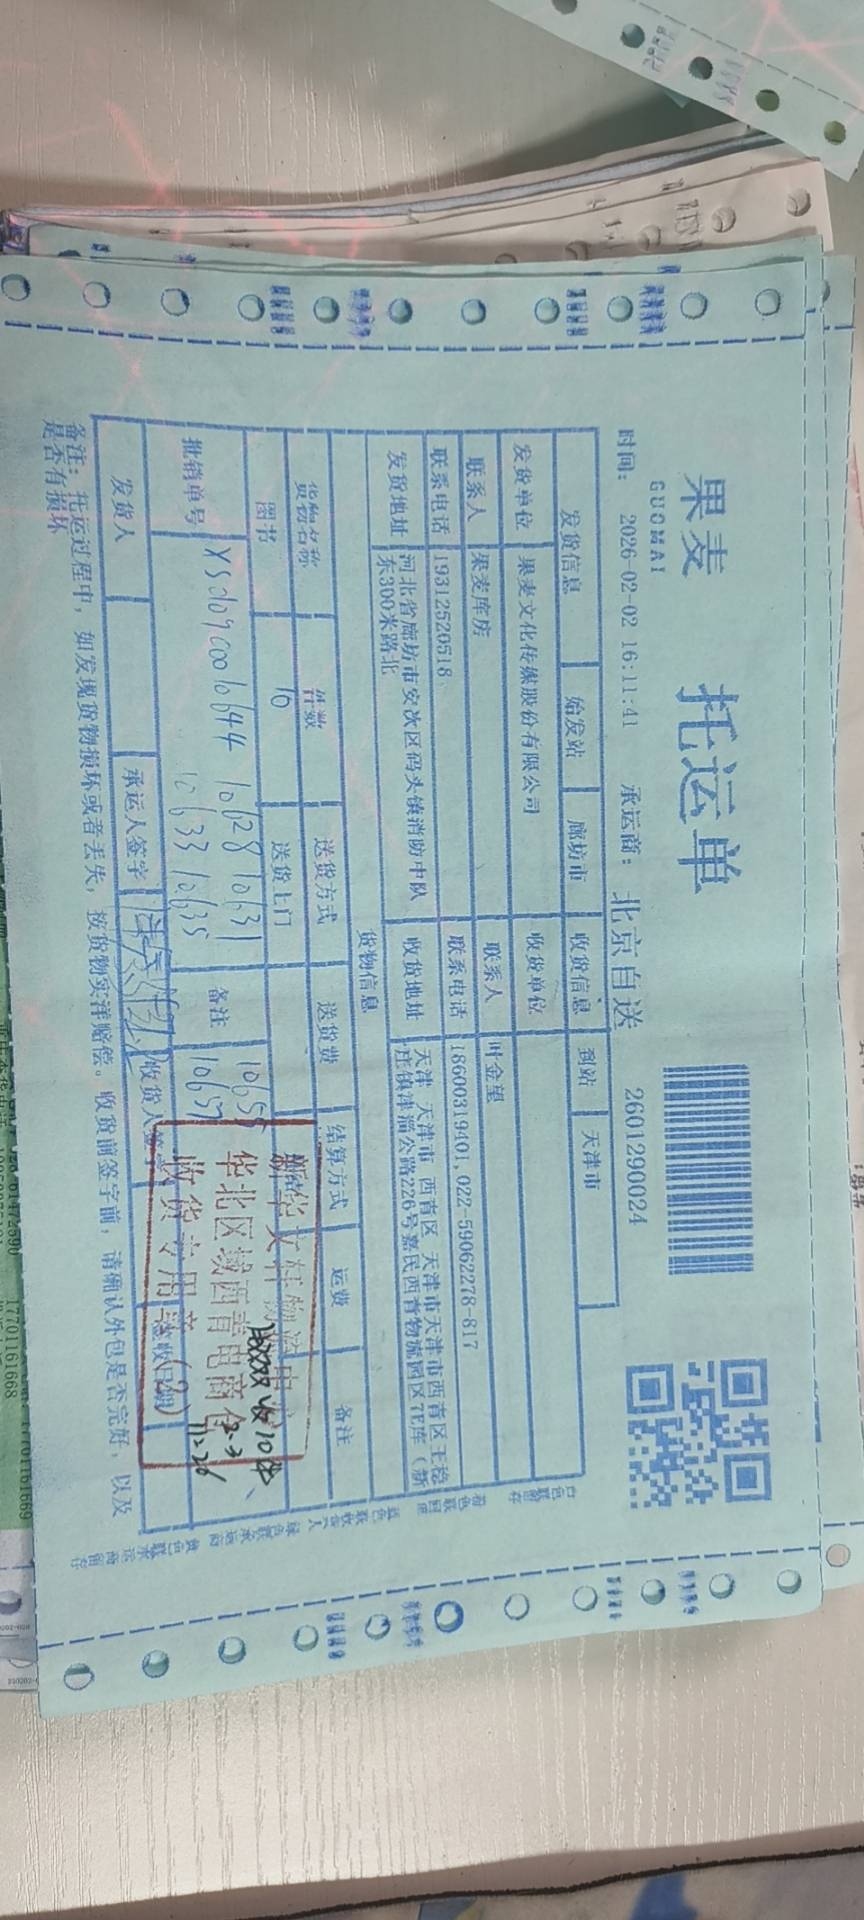 果麦 托运单
GUOMAI
时间: 2026-02-02 16:11:41 承运商: 北京自送 2601290024
发货信息 始发站 廊坊市 收货信息 到站 天津市
发货单位 果麦文化传媒股份有限公司 收货单位
联系人 果麦库房 联系人 叶金望
联系电话 19312520518 联系电话 18600319401, 022-59062278-817
发货地址 河北省廊坊市安次区码头镇消防中队 收货地址 天津 天津市 西青区 天津市天津市西青区王稳
东300米路北 庄镇津淄公路226号嘉民西青物流园区7E库（新
货物信息
货物名称 件数 送货方式 送货费 结算方式 运费 备注
图书 10 送货上门
批销单号 10644 10628 10631 备注 10655
10633 10635 10657
新华文轩物流中心
华北区域西青电商仓
收货专用章(2)
收10件
2.3
11:26
发货人 承运人签字 收货人签字 签收日期
备注: 托运过程中, 如发现货物损坏或者丢失, 按货物实洋赔偿。收货前签字前, 请确认外包是否完好, 以及
是否有损坏
17701161668
17701161669